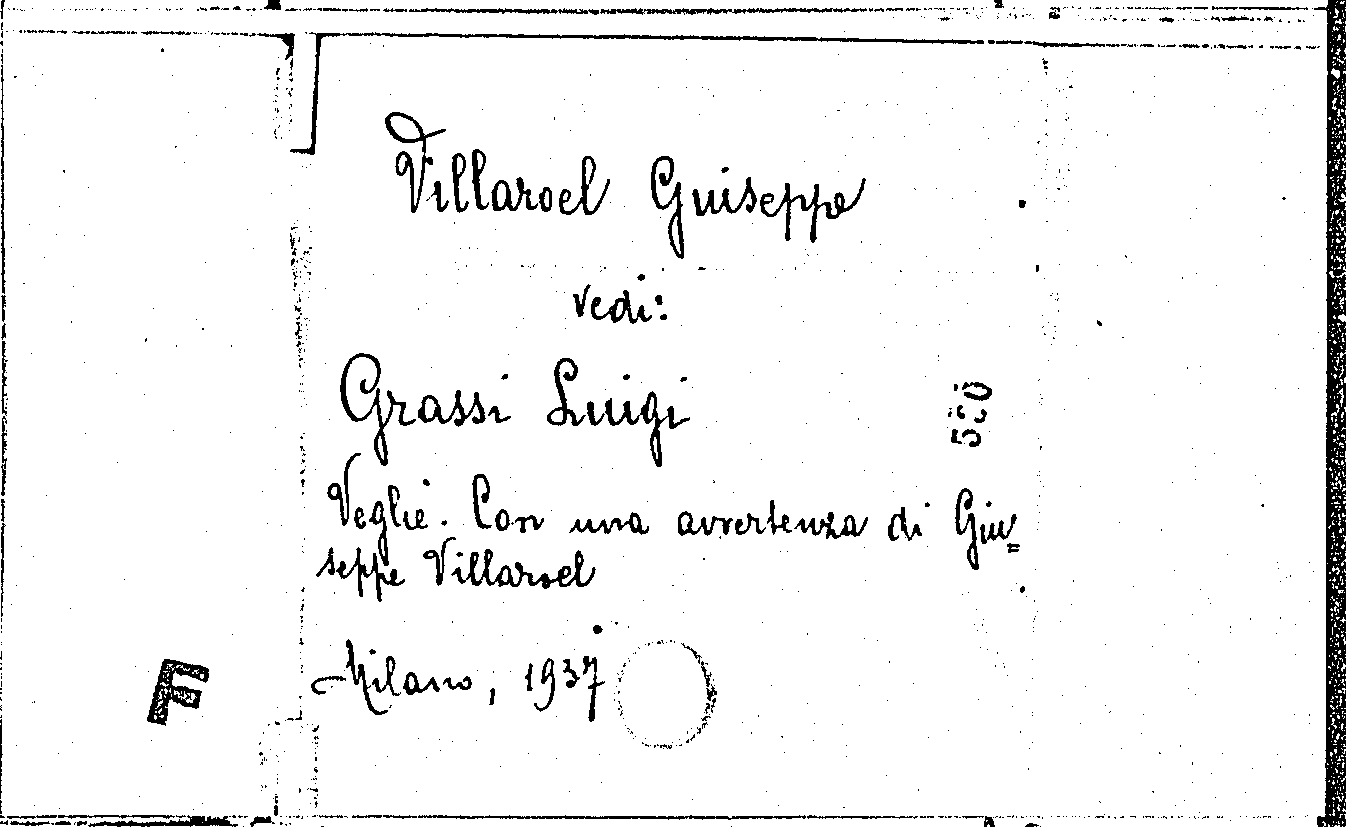 Villaroel Guiseppe
vedi:
Grassi Luigi
Veglie. Con una avvertenza di Giu=
seppe Villaroel
Milano, 1937
F